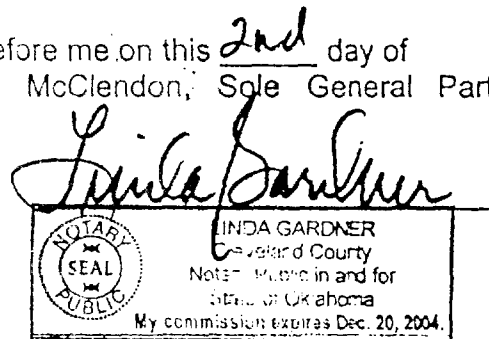 efore me on this 2nd day of
McClendon, Sole General Part
Linda Gardner
NOTARY
SEAL
PUBLIC
LINDA GARDNER
Cleveland County
Notary Public in and for
State of Oklahoma
My commission expires Dec. 20, 2004.